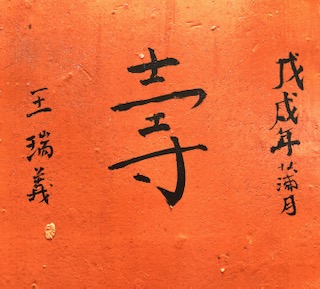 戊戌年蒲月
壽
王瑞義